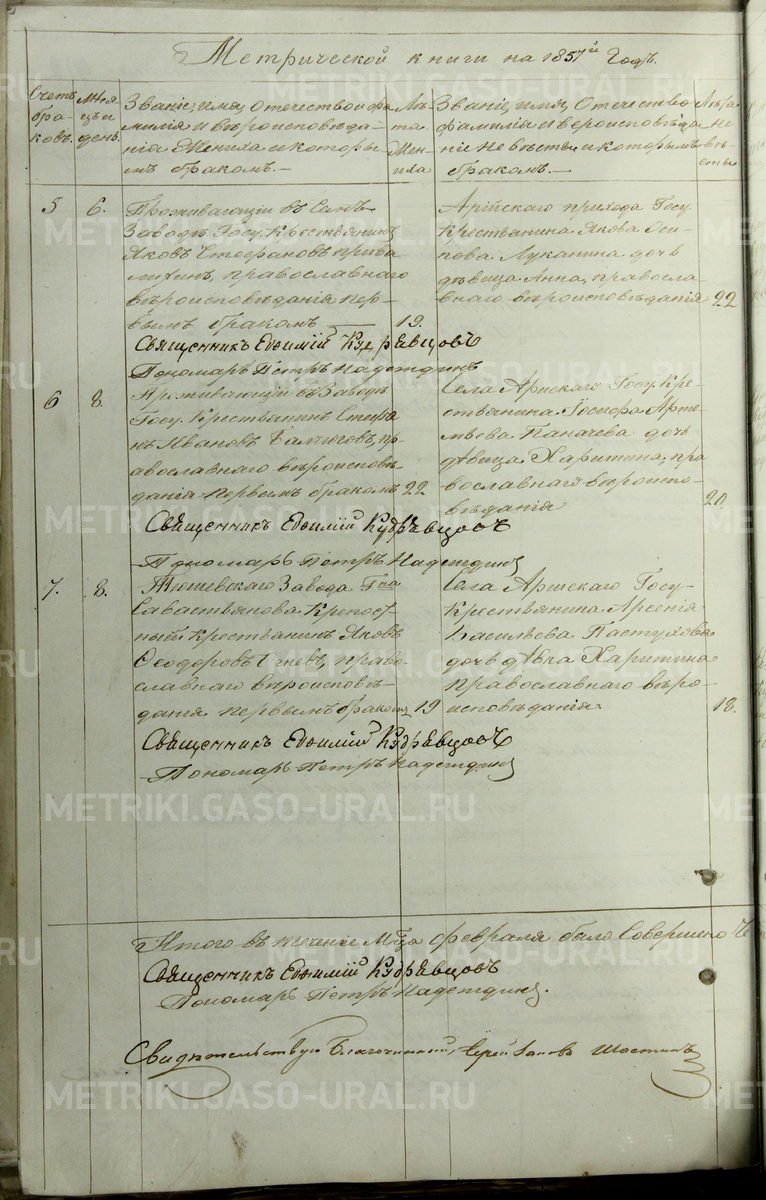 Метрической книги на 1857й Годъ.
Счетъ бра- ковъ.
Мѣся- цъ и день.
Званіе, имя, отечество и фа-
милія и вѣроисповѣда-
нія Жениха и которы-
мъ бракомъ.—
Лѣ-
та
Же-
ниха
Званіе, имя, Отечество
фамилія и вероисповѣда
ніе невѣсты и которымъ
бракомъ.—
Лѣта
Не-
вѣ-
сты
5 6. Проживающій въ
Заводѣ Госу. Крестьянинъ
Яковъ Стефановъ
православнаго
вѣроисповѣданія пер-
вымъ бракомъ — 19.
Арійскаго прихода Госу
Крестьянина Якова Оси-
пова Луканина дочь
дѣвица Анна, правосла-
внаго вѣроисповѣданія 22
Священникъ Евѳимій Кудрявцовъ
Пономарь Петръ Надеждинъ
6 8. въ Заводѣ
Госу. Крестьянинъ Стефа
нъ Ивановъ пр-
авославнаго вѣроисповѣ-
данія первымъ бракомъ 22
Села Арійскаго Госу. Кре-
стьянина Іосифа Арте-
мьева Папачева дочь
дѣвица Харитина, пра
вославнаго вѣроиспо-
вѣданія 20.
Священникъ Евѳимій Кудрявцовъ
Пономарь Петръ Надеждинъ
7. 8. Завода Гна
Савастьянова Крепост-
ный крестьянинъ Яковъ
Ѳеодоровъ право-
славнаго вѣроисповѣ-
данія первымъ бракомъ 19
Села Арійскаго Госу-
Крестьянина Арсенія
Васильева Пастухова
дочь дѣвка Харитина
православнаго вѣро-
исповѣданія. 18.
Священникъ Евѳимій Кудрявцовъ
Пономарь Петръ Надеждинъ
Итого въ теченіе Мца февраля было Совершено
Священникъ Евѳимій Кудрявцовъ
Пономарь Петръ Надеждинъ.
Свидѣтельствую Благочинный, Іерей Іаковъ Шастинъ
METRIKI.GASO-URAL.RU